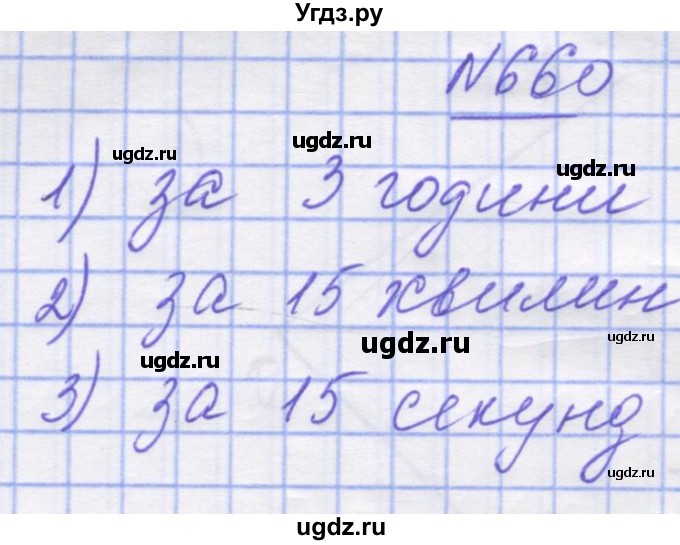 Угдз.ру
№660
ugdz.ru ugdz.ru ugdz.ru
1) за 3 години
2) за 15 хвилин
ugdz.ru ugdz.ru
3) за 15 секунд
ugdz.ru
ugdz.ru